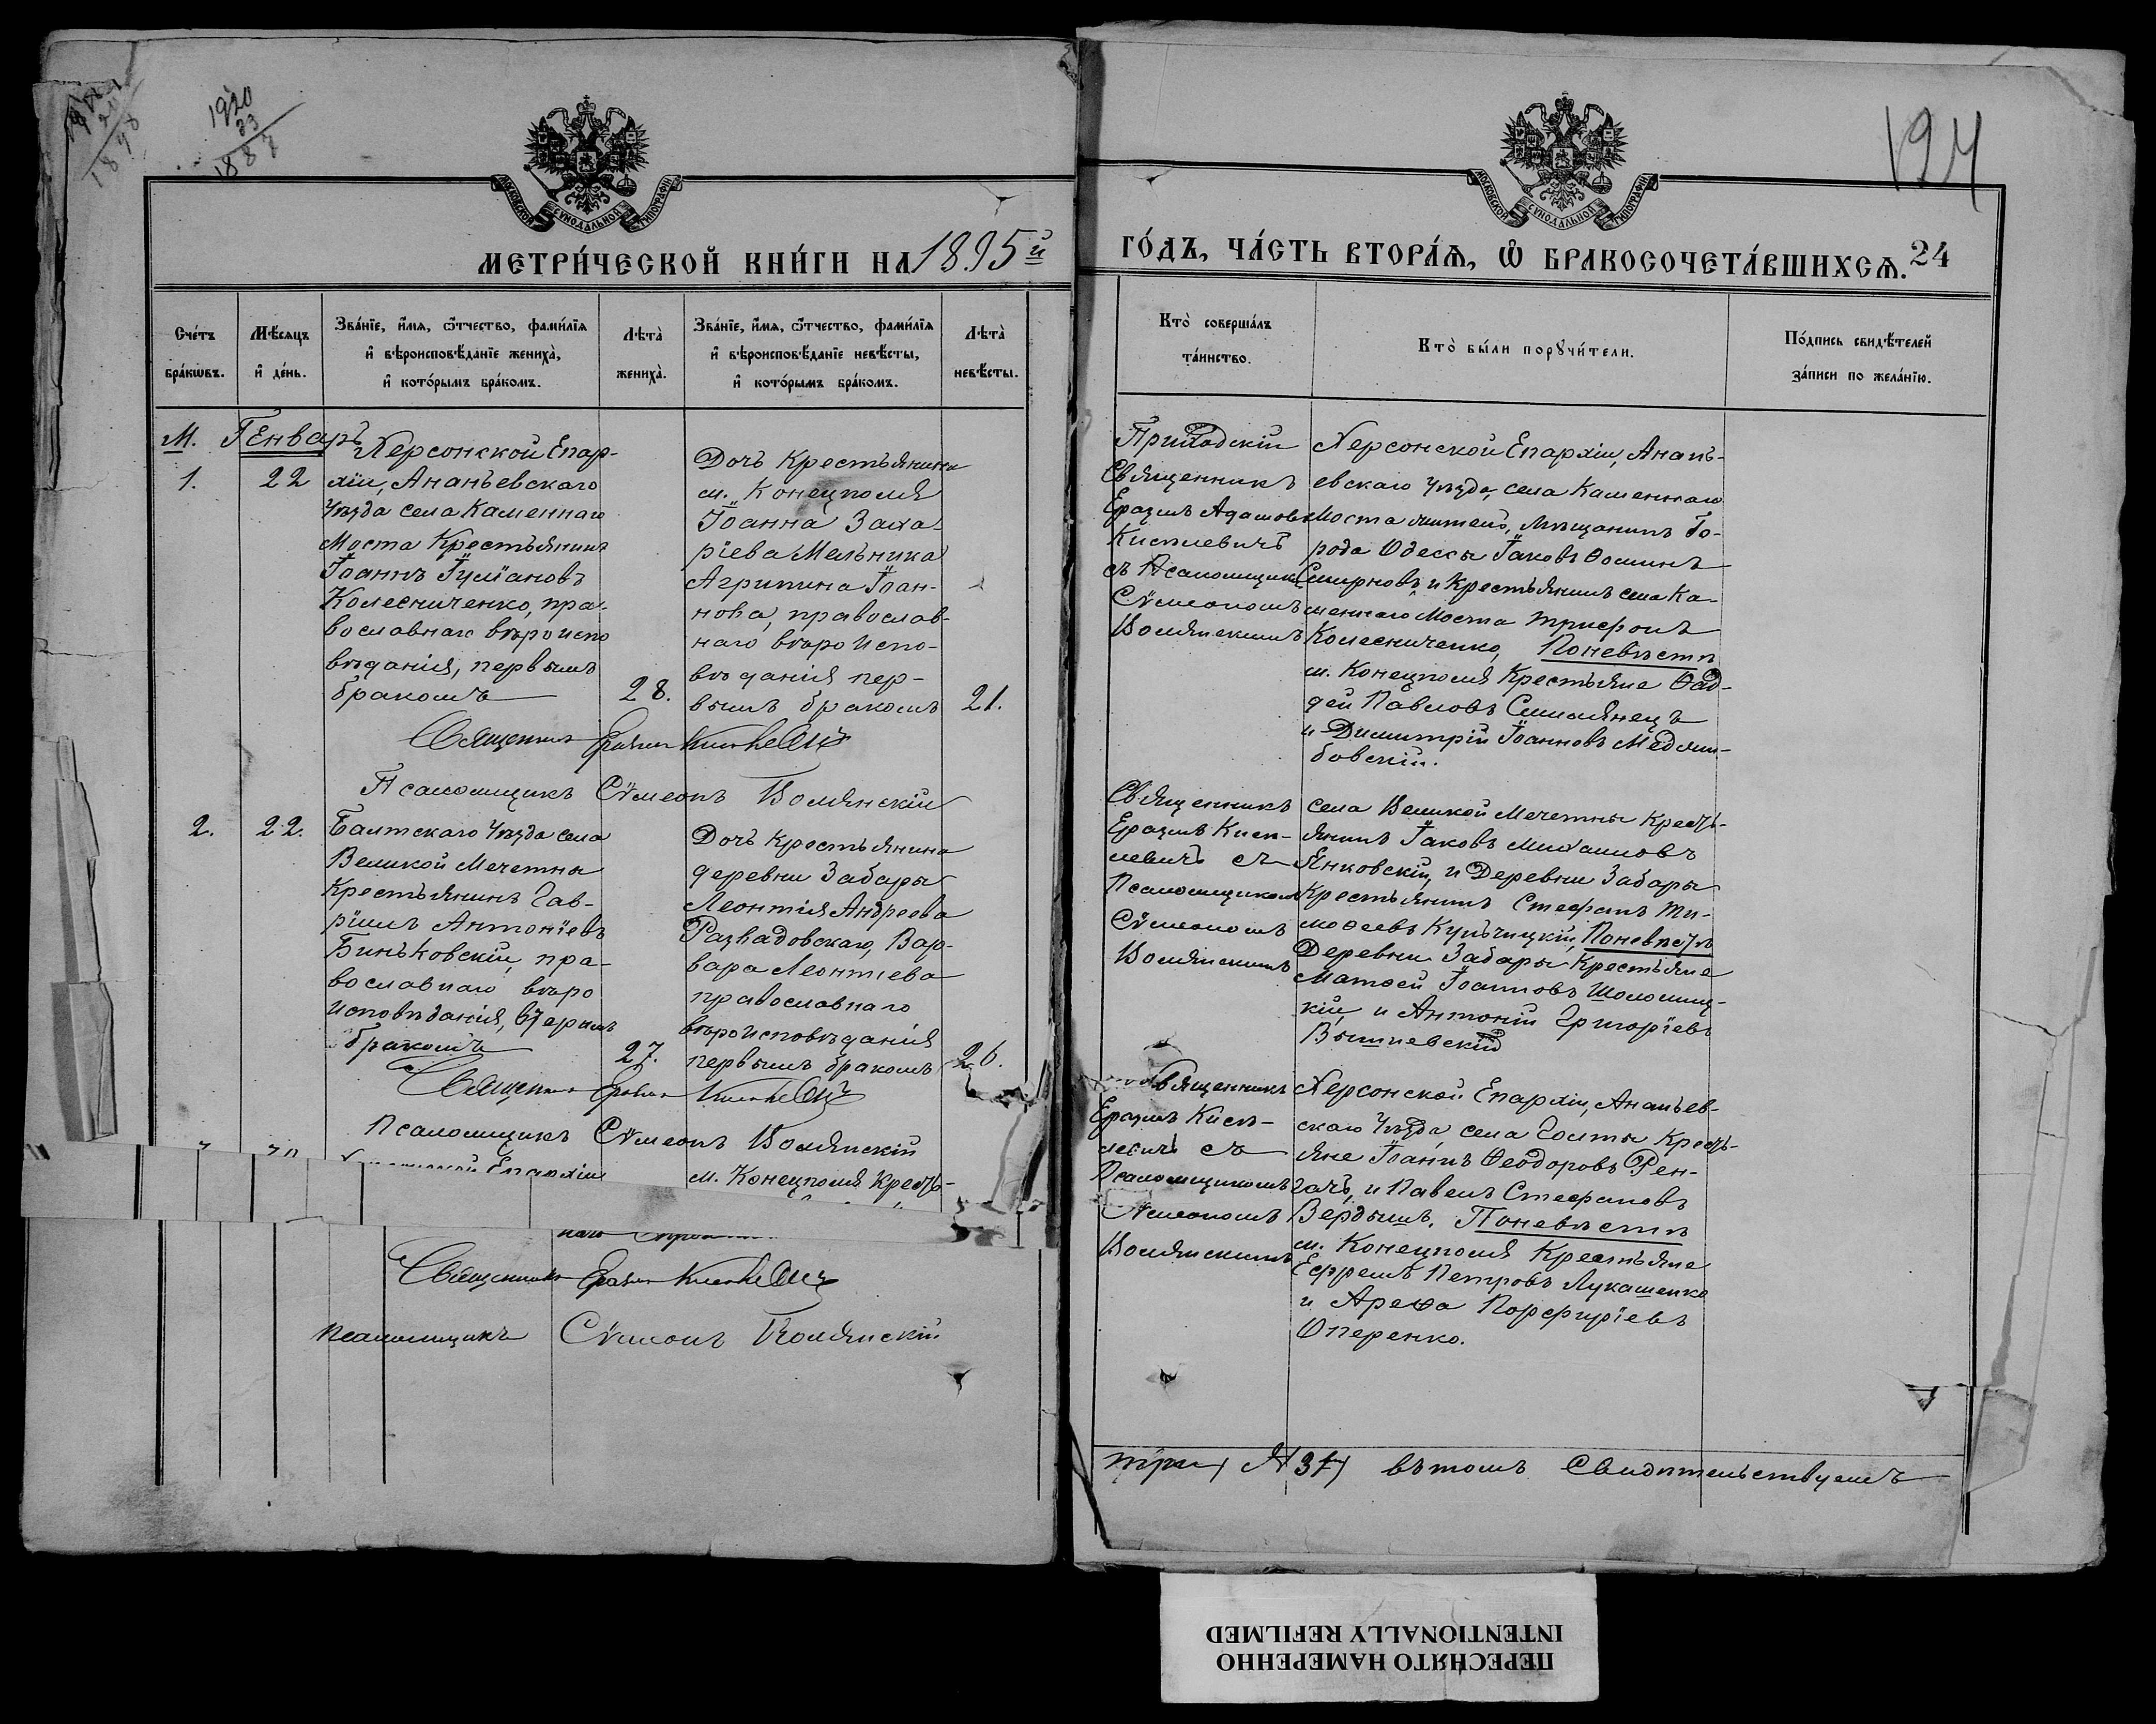 1920
23
1887
194
МОСКОВСКОЙ СѴНОДАЛЬНОЙ ТИПОГРАФІИ
МОСКОВСКОЙ СѴНОДАЛЬНОЙ ТИПОГРАФІИ
МЕТРИ́ЧЕСКОЙ КНИ́ГИ НА 1895й
ГО́ДЪ, ЧА́СТЬ ВТОРА́Ѧ, Ѽ БРАКОСОЧЕТА́ВШИХСѦ. 24
Сче́тъ
бра́кѡвъ.
Мѣ́сяцъ
и҆ де́нь.
Зва́нїе, и҆́мѧ, ѻ҆́тчество, фами́лїѧ
и҆ вѣроисповѣ́данїе жениха̀,
и҆ кото́рымъ бра́комъ.
Лѣта̀
жениха̀.
Зва́нїе, и҆́мѧ, ѻ҆́тчество, фами́лїѧ
и҆ вѣроисповѣ́данїе невѣ́сты,
и҆ кото́рымъ бра́комъ.
Лѣта̀
невѣ́сты.
Кто̀ соверша́лъ
та́инство.
Кто̀ бы́ли порꙋчи́тели.
По́дпись свидѣ́телей
за́писи по жела́нїю.
М. Генварь
1.
22
Херсонской Епар-
хіи, Ананьевскаго
Уѣзда села Каменнаго
Моста Крестьянинъ
Іоаннъ
Колесниченко, пра-
вославнаго вѣроиспо
вѣданія, первымъ
бракомъ
28.
Дочь Крестьянина
м. Конецполя
Іоанна Заха-
ріева Мельника
Агрипина Іоан-
нова, православ-
наго вѣроиспо-
вѣданія пер-
вымъ бракомъ
21.
Приходскій
Священникъ
Еразмъ Адамовъ
Киселевичъ
съ Псаломщикомъ
Сѵмеономъ
Волянскимъ
Херсонской Епархіи, Анань-
евскаго Уѣзда, села Каменнаго
Моста житель, Мѣщанинъ Го-
рода Одессы Іаковъ Ѳоминъ
Смирновъ и Крестьянинъ села Ка-
меннаго Моста Трифонъ
Колесниченко, Поневѣстѣ
м. Конецполя Крестьяне Ѳад-
дей Павловъ Смилянецъ
и Димитрій Іоанновъ Меджи-
бовскій.
Священникъ Еразмъ Киселевичъ
Псаломщикъ Сѵмеонъ Волянскій
2.
22.
Балтскаго Уѣзда села
Великой Мечетны
Крестьянинъ Гав-
ріилъ Антоніевъ
Биньковскій, пра-
вославнаго вѣро
исповѣданія, вторымъ
бракомъ
27.
Дочь Крестьянина
деревни Забары
Леонтія Андреева
Развадовскаго, Вар-
вара Леонтіева
православнаго
вѣроисповѣданія
первымъ бракомъ
26.
Священникъ
Еразмъ Кисе-
левичъ съ
Псаломщикомъ
Сѵмеономъ
Волянскимъ
села Великой Мечетны Кресть-
янинъ Іаковъ Михаиловъ
Янковскій, и Деревни Забары
Крестьянинъ Стефанъ Ти-
моѳеевъ Кульчицкій, Поневѣстѣ
Деревни Забары Крестьяне
Матѳей Іоанновъ Шоломиц-
кій, и Антоній Григоріевъ
Вышневскій
Священникъ Еразмъ Киселевичъ
Псаломщикъ Сѵмеонъ Волянскій
Епархіи
м. Конецполя Кресть-
Священникъ
Еразмъ Кисе-
левичъ съ
Псаломщикомъ
Сѵмеономъ
Волянскимъ
Херсонской Епархіи, Ананьев-
скаго Уѣзда, села Голты Кресть-
яне Іоаннъ Ѳеодоровъ Рен-
гачъ, и Павелъ Стефановъ
Вердышъ. Поневѣстѣ
м. Конецполя Крестьяне
Ефремъ Петровъ Лукашенко
и Арефа Порфиріевъ
Оперенко.
Священникъ Еразмъ Киселевичъ
Псаломщикъ Сѵмеонъ Волянскій
три) въ томъ Свидѣтельствуемъ
ПЕРЕСНЯТО НАМЕРЕННО
INTENTIONALLY REFILMED